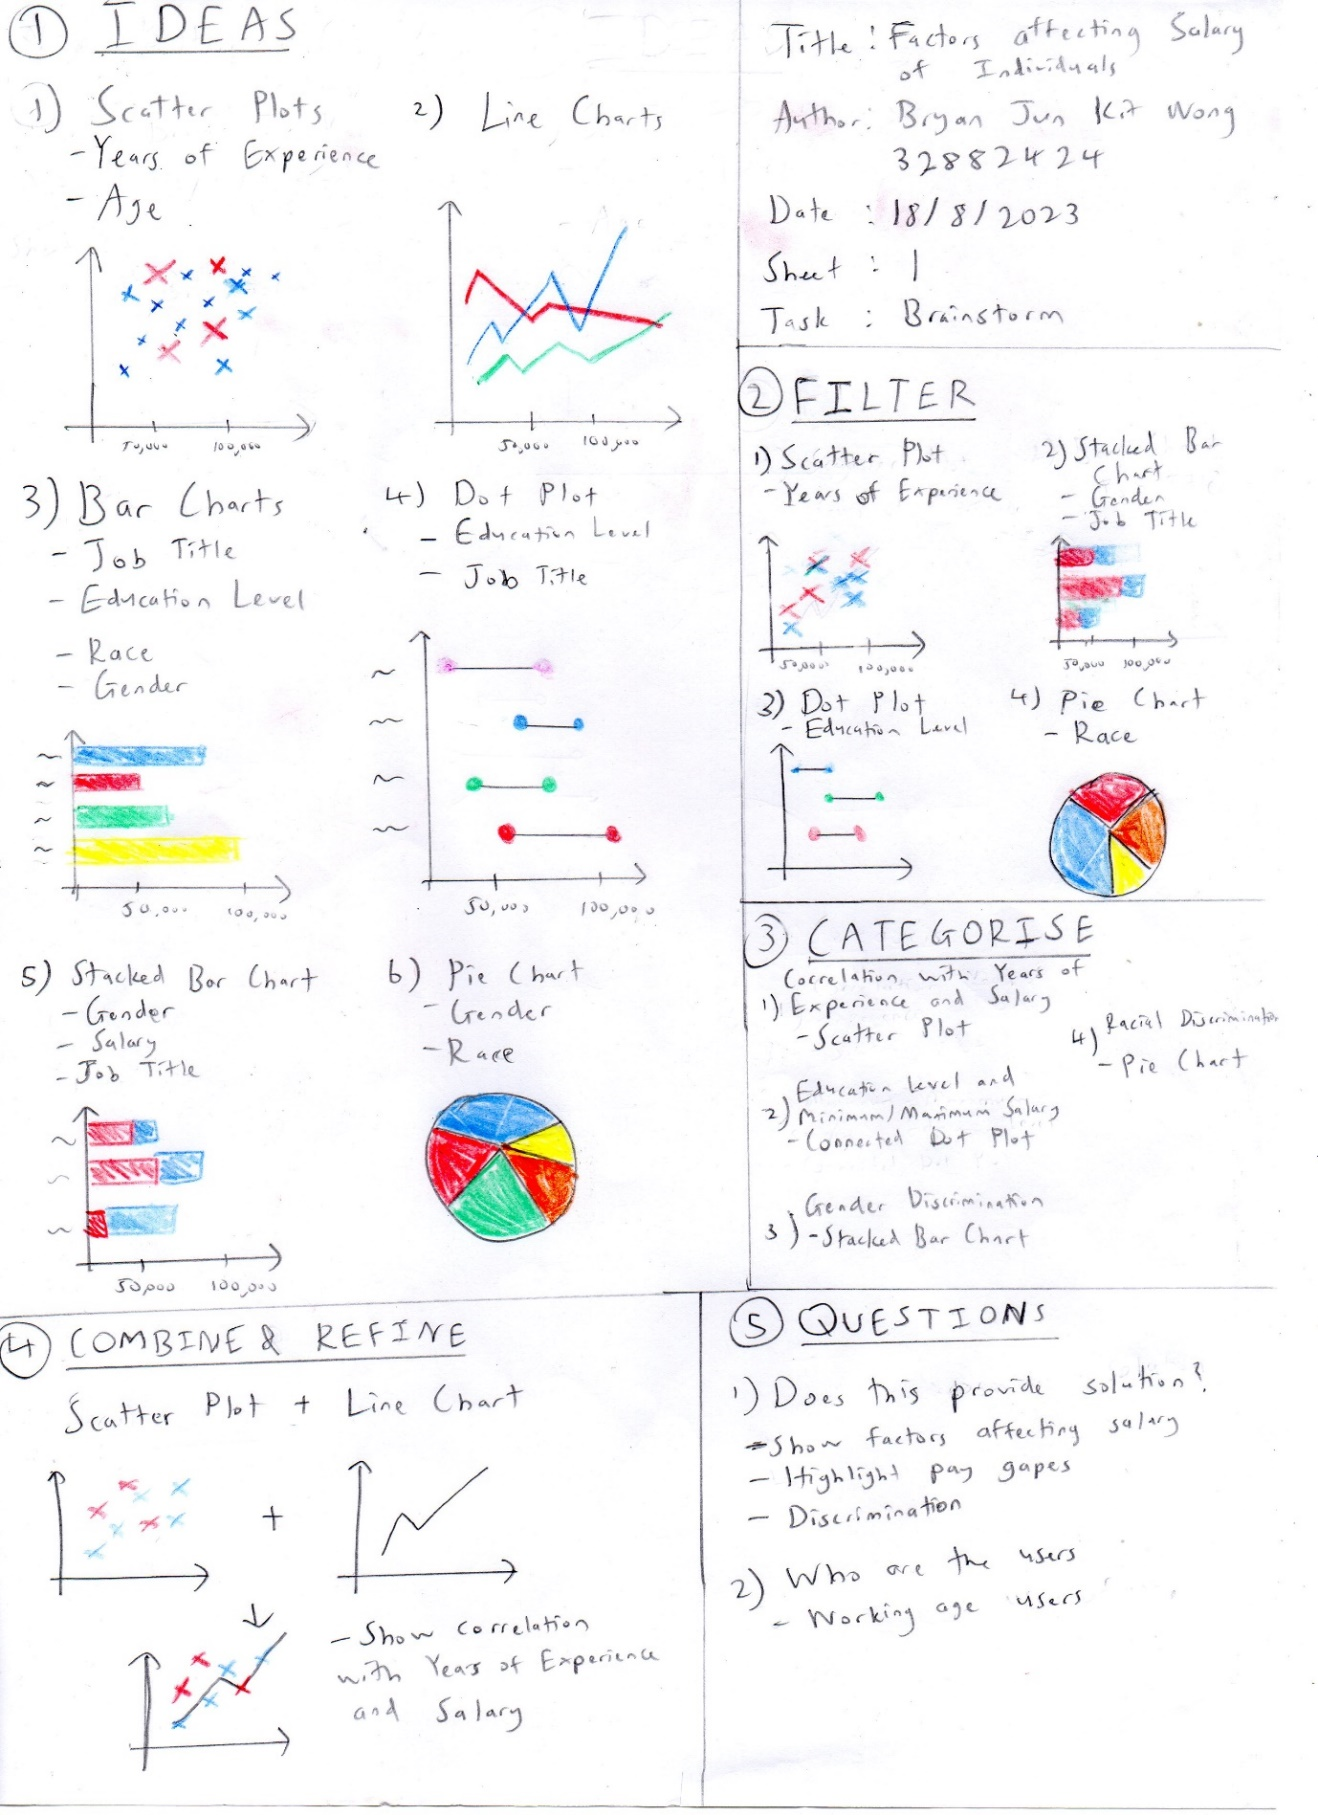 ① IDEAS
1) Scatter Plots
- Years of Experience
- Age
50,000 100,000
2) Line Charts
50,000 100,000
3) Bar Charts
- Job Title
- Education Level
- Race
- Gender
50,000 100,000
4) Dot Plot
- Education Level
- Job Title
50,000 100,000
5) Stacked Bar Chart
- Gender
- Salary
- Job Title
50,000 100,000
6) Pie Chart
- Gender
- Race
Title : Factors affecting Salary
of Individuals
Author : Bryan Jun Kit Wong
32882424
Date : 18/8/2023
Sheet : 1
Task : Brainstorm
② FILTER
1) Scatter Plot
- Years of Experience
50,000 100,000
2) Stacked Bar
Chart
- Gender
- Job Title
50,000 100,000
3) Dot Plot
- Education Level
4) Pie Chart
- Race
③ CATEGORISE
Correlation with Years of
1) Experience and Salary
- Scatter Plot
Education Level and
2) Minimum/Maximum Salary
- Connected Dot Plot
Gender Discrimination
3) - Stacked Bar Chart
4) Racial Discrimination
- Pie Chart
④ COMBINE & REFINE
Scatter Plot + Line Chart
+
- Show correlation
with Years of Experience
and Salary
⑤ QUESTIONS
1) Does this provide solution?
- Show factors affecting salary
- Highlight pay gapes
- Discrimination
2) Who are the users
- Working age users